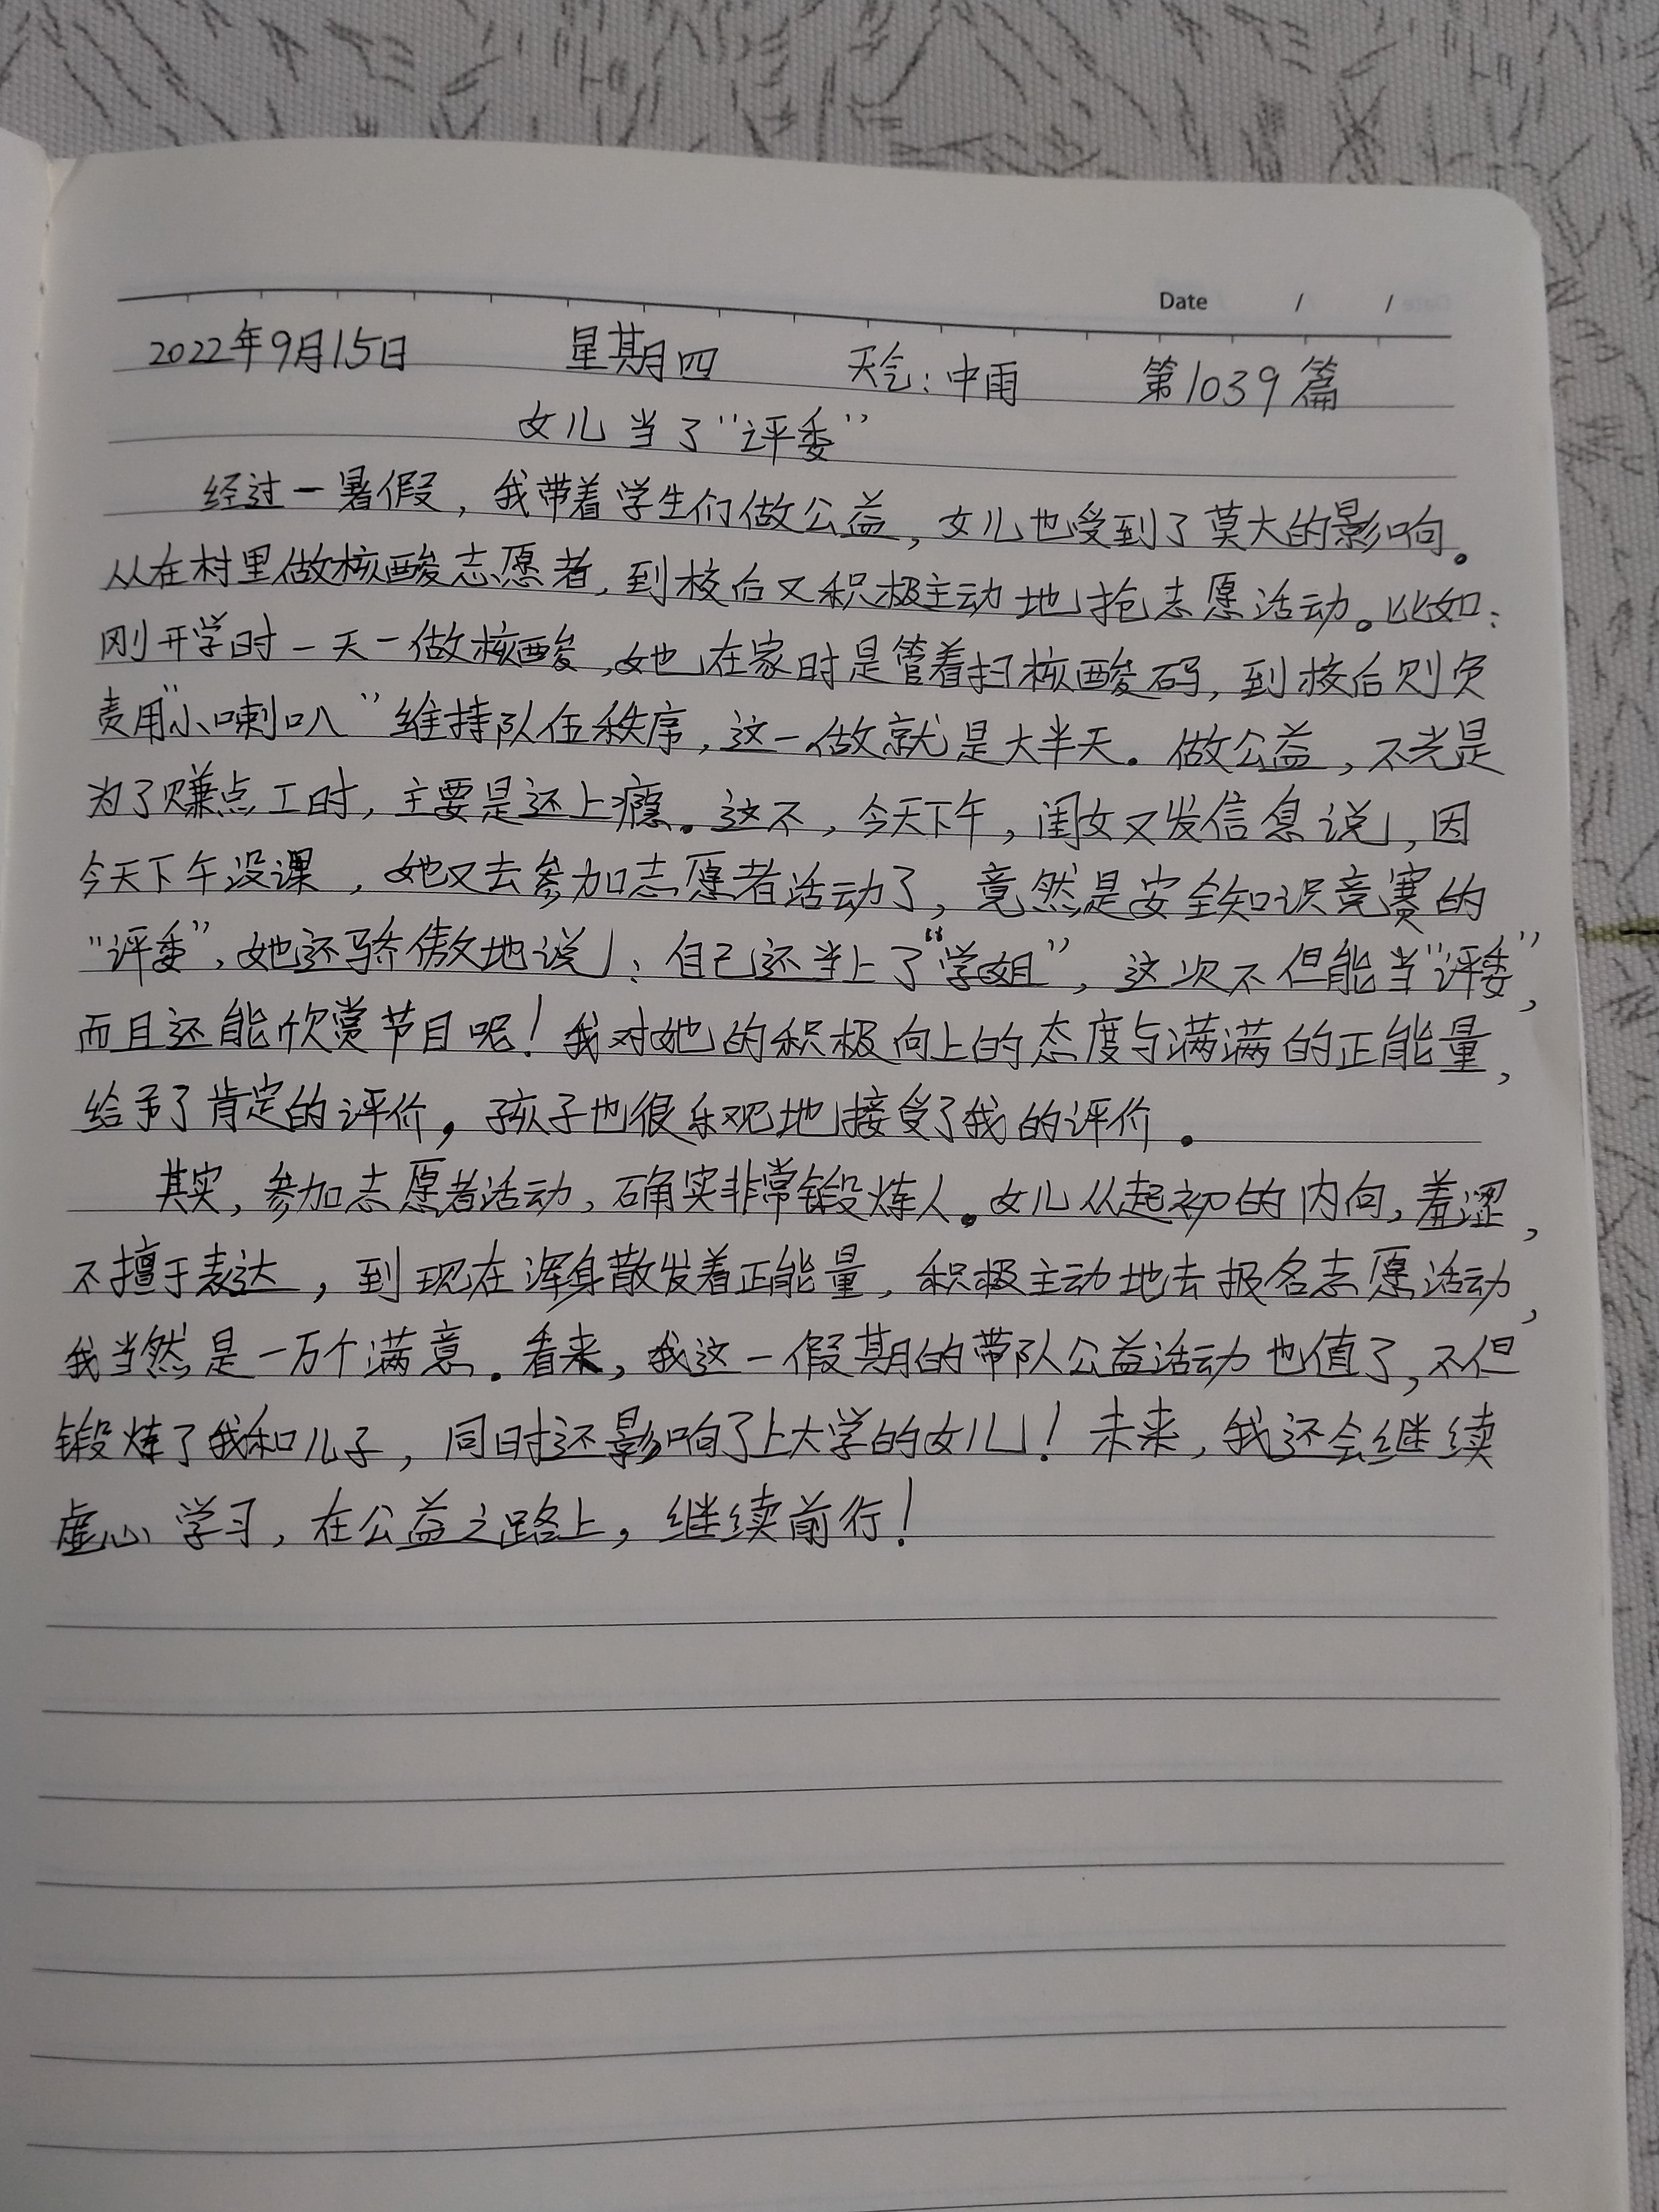 Date / /
2022年9月15日 星期四 天气：中雨 第1039篇
女儿当了“评委”
经过一暑假，我带着学生们做公益，女儿也受到了莫大的影响。
从在村里做核酸志愿者，到校后又积极主动地抢志愿活动。比如：
刚开学时一天一做核酸，她在家时是管着扫核酸码，到校后则负
责用“小喇叭”维持队伍秩序，这一做就是大半天。做公益，不光是
为了赚点工时，主要是还上瘾。这不，今天下午，闺女又发信息说，因
今天下午没课，她又去参加志愿者活动了，竟然是安全知识竞赛的
“评委”，她还骄傲地说：自己还当上了“学姐”，这次不但能当“评委”，
而且还能欣赏节目呢！我对她的积极向上的态度与满满的正能量，
给予了肯定的评价，孩子也很乐观地接受了我的评价。
其实，参加志愿者活动，确实非常锻炼人。女儿从起初的内向，羞涩，
不擅于表达，到现在浑身散发着正能量，积极主动地去报名志愿活动，
我当然是一万个满意。看来，我这一假期的带队公益活动也值了，不但
锻炼了我和儿子，同时还影响了上大学的女儿！未来，我还会继续
虚心学习，在公益之路上，继续前行！